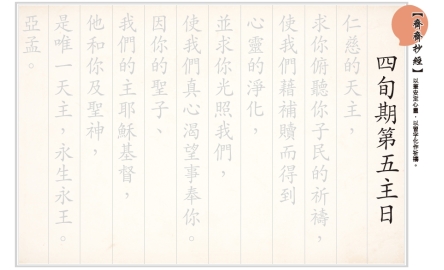 【齊齊抄經】
以筆安定心靈，以習字化作祈禱。
四旬期第五主日
仁慈的天主，
求你俯聽你子民的祈禱，
使我們藉補贖而得到
心靈的淨化，
並求你光照我們，
使我們真心渴望事奉你。
因你的聖子、
我們的主耶穌基督，
他和你及聖神，
是唯一天主，永生永王。
亞孟。